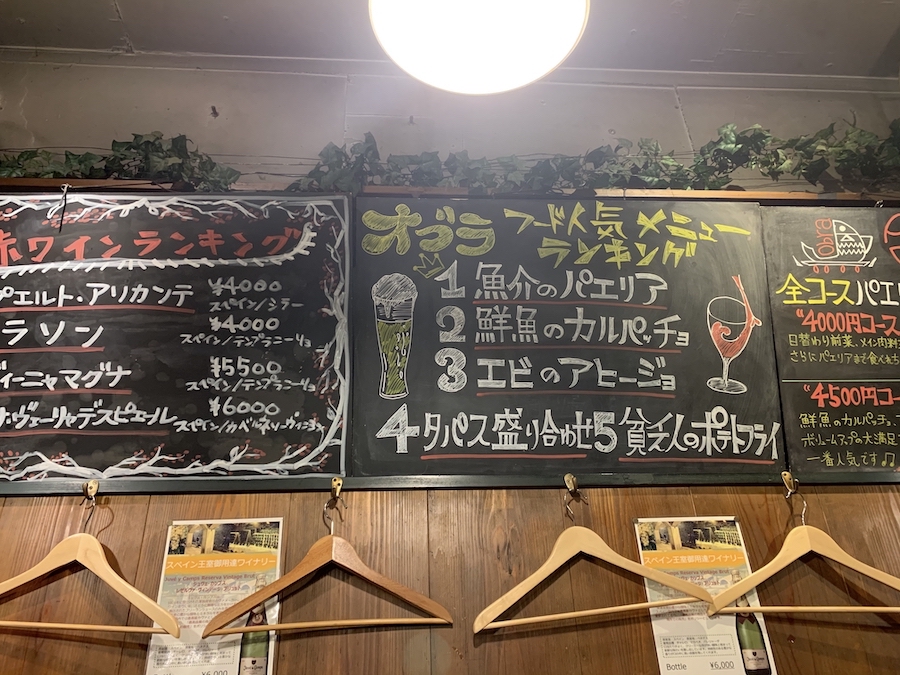 赤ワインランキング
プエルト・アリカンテ ¥4000
スペイン/シラー
ラソン ¥4000
スペイン/テンプラニーリョ
ヴィーニャマグナ ¥5500
スペイン/テンプラニーリョ
¥6000
オブラ フード人気メニュー
ランキング
1 魚介のパエリア
2 鮮魚のカルパッチョ
3 エビのアヒージョ
4 タパス盛り合わせ 5 貧乏人のポテトフライ
obra
全コースパエリ
"4000円コース
日替わり前菜、メイン肉料
さらにパエリアまで食べれち
"4500円コー
鮮魚のカルパッチョ、
ボリュームアップの大満足
一番人気です♫
スペイン王室御用達ワイナリー
¥6,000
スペイン王室御用達ワイナリー
Bottle ¥6,000